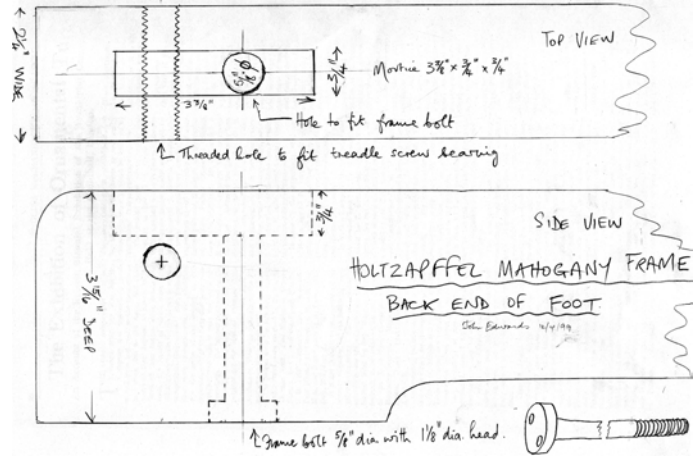 TOP VIEW
2¼" WIDE
Mortice 3⅜" × ¾" × ¾"
ϕ ⅝"
¾"
3⅜"
Hole to fit frame bolt
Threaded hole to fit treadle screw bearing
¾"
SIDE VIEW
HOLTZAPFFEL MAHOGANY FRAME
BACK END OF FOOT
John Edwards
3 15/16" DEEP
Frame bolt ⅝" dia with 1⅛" dia. head.